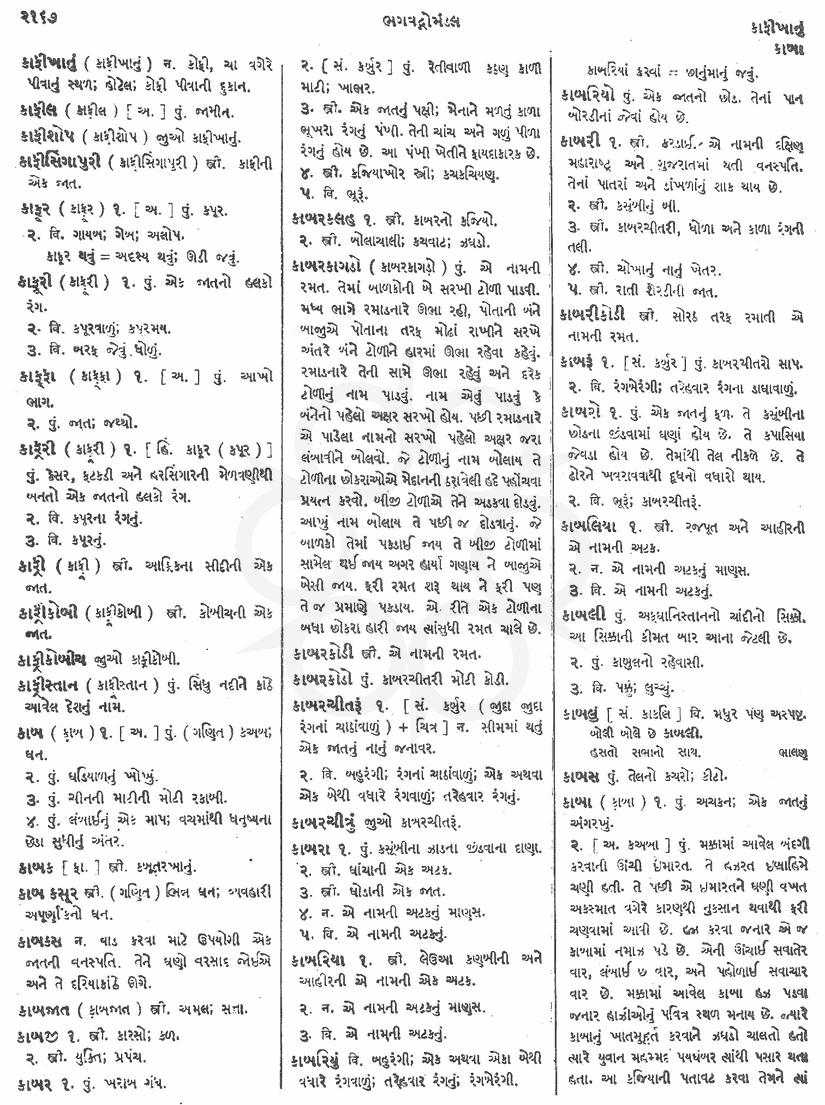 ૨૧૬૭
ભગવદ્ગોમંડલ
કાફીખાનું
કાબા
કાફીખાનું ( કાફ઼ીખાનું ) ન. કોફી, ચા વગેરે
પીવાનું સ્થળ; હોટેલ; કોફી પીવાની દુકાન.
કાફીલ ( કાફ઼ીલ ) [ અ. ] પું. જામીન.
કાફીશોપ ( કાફ઼ીશોપ ) જુઓ કાફીખાનું.
કાફીસિંગાપુરી ( કાફ઼ીસિંગાપુરી ) સ્ત્રી. કાફીની
એક જાત.
કાફૂર ( કાફ઼ૂર ) ૧. [ અ. ] પું. કપૂર.
૨. વિ. ગાયબ; ગેબ; અલોપ.
કાફૂર થવું = અદશ્ય થવું; ઊડી જવું.
કાફૂરી ( કાફ઼ૂરી ) ૧. પું. એક જાતનો હલકો
રંગ.
૨. વિ. કપૂરવાળું; કપૂરમય.
૩. વિ. બરફ જેવું ધોળું.
કાફ્ફા ( કાફ઼્ફ઼ા ) ૧. [ અ. ] પું. આખો
ભાગ.
૨. પું. જાત; જથ્થો.
કાફૂરી ( કાફ઼ૂરી ) ૧. [ હિં. કાફૂર ( કપૂર ) ]
પું. કેસર, ફટકડી અને હરસિંગારની મેળવણીથી
બનતો એક જાતનો હલકો રંગ.
૨. વિ. કપૂરના રંગનું.
૩. વિ. કપૂરનું.
કાફ્રી ( કાફ઼્રી ) સ્ત્રી. આફ્રિકના સીદીની એક
જાત.
કાફ્રીકોબી ( કાફ઼્રીકોબી ) સ્ત્રી. કોબીચની એક
જાત.
કાફ્રીકોબીચ જુઓ કાફ્રીકોબી.
કાફ્રીસ્તાન ( કાફ઼્રીસ્તાન ) પું. સિંધુ નદીને કાંઠે
આવેલ દેશનું નામ.
કાબ ( કાબ ) ૧. [ અ. ] પું. ( ગણિત ) કઅબ;
ઘન.
૨. પું. ઘડિયાળનું ખોખું.
૩. પું. ચીનની માટીની મોટી રકાબી.
૪. પું. લંબાઈનું એક માપ; વચમાંથી ધનુષ્યના
છેડા સુધીનું અંતર.
કાબક [ ફા. ] સ્ત્રી. કબૂતરખાનું.
કાબ કસૂર સ્ત્રી. ( ગણિત ) ભિન્ન ઘન; વ્યવહારી
અપૂર્ણાંકનો ઘન.
કાબકસ ન. વાડ કરવા માટે ઉપયોગી એક
જાતની વનસ્પતિ. તેને ઘણો વરસાદ જોઈએ
અને તે દરિયાકાંઠે ઊગે.
કાબજાત ( કાબજાત ) સ્ત્રી. અમલ; સત્તા.
કાબજી ૧. સ્ત્રી. કારસો; કળ.
૨. સ્ત્રી. યુક્તિ; પ્રપંચ.
કાબર ૧. પું. ખરાબ ગંધ.
૨. [ સં. કર્બુર ] પું. રેતીવાળી કઠણ કાળી
માટી; ખાભર.
૩. સ્ત્રી. એક જાતનું પક્ષી; મેનાને મળતું કાળા
ભૂખરા રંગનું પંખી. તેની ચાંચ અને ગળું પીળા
રંગનું હોય છે. આ પંખી ખેતીને ફાયદાકારક છે.
૪. સ્ત્રી. કજિયાખોર સ્ત્રી; કચકચિયણ.
૫. વિ. ભૂરૂં.
કાબરકલહ ૧. સ્ત્રી. કાબરનો કજિયો.
૨. સ્ત્રી. બોલાચાલી; કચવાટ; ઝઘડો.
કાબરકાગડો ( કાબરકાગડ઼ો ) પું. એ નામની
રમત. તેમાં બાળકોની બે સરખી ટોળી પાડવી.
મધ્ય ભાગે રમાડનારે ઊભા રહી, પોતાની બંને
બાજુએ પોતાના તરફ મોઢાં રાખીને સરખે
અંતરે બંને ટોળીને હારમાં ઊભા રહેવા કહેવું.
રમાડનારે તેની સામે ઊભા રહેવું અને દરેક
ટોળીનું નામ પાડવું. નામ એવું પાડવું કે
બંનેનો પહેલો અક્ષર સરખો હોય. પછી રમાડનારે
એ પાડેલા નામનો સરખો પહેલો અક્ષર જરા
લંબાવીને બોલવો. જે ટોળીનું નામ બોલાય તે
ટોળીના છોકરાઓએ મેદાનની ઠરાવેલી હદે પહોંચવા
પ્રયત્ન કરવો. બીજી ટોળીએ તેને અડકવા દોડવું.
આખું નામ બોલાય તે પછી જ દોડવાનું. જે
બાળકો તેમાં પકડાઈ જાય તે બીજી ટોળીમાં
સામેલ થઈ જાય અગર હાર્યા ગણાય ને બાજુએ
બેસી જાય. ફરી રમત શરૂ થાય ને ફરી પણ
તે જ પ્રમાણે પકડાય. એ રીતે એક ટોળીના
બધા છોકરા હારી જાય ત્યાંસુધી રમત ચાલે છે.
કાબરકોડી સ્ત્રી. એ નામની રમત.
કાબરકોડો પું. કાબરચીતરી મોટી કોડી.
કાબરચીતરૂં ૧. [ સં. કર્બુર ( જુદા જુદા
રંગનાં ચાઠાંવાળું ) + ચિત્ર ] ન. સીમમાં થતું
એક જાતનું નાનું જનાવર.
૨. વિ. બહુરંગી; રંગનાં ચાઠાંવાળું; એક અથવા
એક બેથી વધારે રંગવાળું; તરેહવાર રંગનું.
કાબરચીત્રું જુઓ કાબરચીતરૂં.
કાબરા ૧. પું. કસુંબીના ઝાડના છોડવાના દાણા.
૨. સ્ત્રી. ઘાંચાની એક અટક.
૩. સ્ત્રી. ઘોડાની એક જાત.
૪. ન. એ નામની અટકનું માણસ.
૫. વિ. એ નામની અટકનું.
કાબરિયા ૧. સ્ત્રી. લેઉઆ કણબીની અને
આહીરની એ નામની એક અટક.
૨. ન. એ નામની અટકનું માણસ.
૩. વિ. એ નામની અટકનું.
કાબરિયું વિ. બહુરંગી; એક અથવા એકા બેથી
વધારે રંગવાળું; તરેહવાર રંગનું; રંગબેરંગી.
કાબરિયાં કરવાં = છાનુંમાનું જવું.
કાબરિયો પું. એક જાતનો છોડ. તેનાં પાન
બોરડીનાં જેવાં હોય છે.
કાબરી ૧. સ્ત્રી. કરડાઈ. એ નામની દક્ષિણ
મહારાષ્ટ્ર અને ગુજરાતમાં થતી વનસ્પતિ.
તેનાં પાતરાં અને ડાંખળાંનું શાક થાય છે.
૨. સ્ત્રી. કસુંબીનું બી.
૩. સ્ત્રી. કાબરચીતરી, ધોળા અને કાળા રંગની
તલી.
૪. સ્ત્રી. ચોખાનું નાનું ખેતર.
૫. સ્ત્રી. રાતી શેરડીની જાત.
કાબરીકોડી સ્ત્રી. સોરઠ તરફ રમાતી એ
નામની રમત.
કાબરૂં ૧. [ સં. કર્બુર ] પું. કાબરચીતરો સાપ.
૨. વિ. રંગબેરંગી; તરેહવાર રંગના ડાઘાવાળું.
કાબરો ૧. પું. એક જાતનું ફળ. તે કસુંબીના
છોડના છોડવામાં ઘણાં હોય છે. તે કપાસિયા
જેવડા હોય છે. તેમાંથી તેલ નીકળે છે. તે
ઢોરને ખવરાવવાથી દૂધનો વધારો થાય.
૨. વિ. ભૂરૂં; કાબરચીતરૂં.
કાબલિયા ૧. સ્ત્રી. રજપૂત અને આહીરની
એ નામની અટક.
૨. ન. એ નામની અટકનું માણસ.
૩. વિ. એ નામની અટકનું.
કાબલી પું. અફઘાનિસ્તાનનો ચાંદીનો સિક્કો.
આ સિક્કાની કીમત બાર આના જેટલી છે.
૨. પું. કાબુલનો રહેવાસી.
૩. વિ. પક્કું; લુચ્ચું.
કાબલું [ સં. કાકલિ ] વિ. મધુર પણ અસ્પષ્ટ.
બોલી બોલે છે કાબલી.
હસતો સભાનો સાથ. ભાલણ
કાબસ પું. તેલનો કચરો; કીટો.
કાબા ( કાબા ) ૧. પું. અચકન; એક જાતનું
અંગરખું.
૨. [ અ. કઅબા ] પું. મક્કામાં આવેલ બંદગી
કરવાની ઊંચી ઇમારત. તે હઝરત ઇબ્રાહિમે
ચણી હતી. તે પછી એ ઇમારતને ઘણી વખત
અકસ્માત વગેરે કારણથી નુકસાન થવાથી ફરી
ચણવામાં આવી છે. હજ કરવા જનાર એ જ
કાબામાં નમાઝ પડે છે. એની ઊંચાઈ સવાતેર
વાર, લંબાઈ છ વાર, અને પહોળાઈ સવાચાર
વાર છે. મક્કામાં આવેલ કાબા હજ પડવા
જનાર હાજીઓનું પવિત્ર સ્થળ મનાય છે. જ્યારે
કાબાનું ખાતમૂહૂર્ત કરવાને ઝઘડો ચાલતો હતો
ત્યારે યુવાન મહમ્મદ પયગંબર ત્યાંથી પસાર થતા
હતા. આ કજિયાની પતાવટ કરવા તેમને ત્યાં